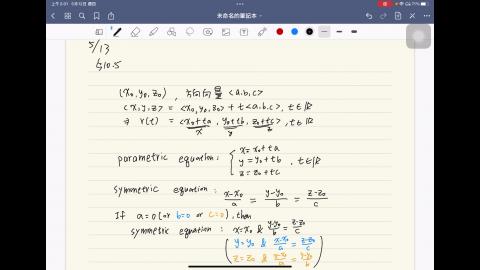 上午8:01 5月13日 週四
71%
未命名的筆記本
5/13
§10.5
(x₀, y₀, z₀), 方向向量 <a,b,c>
<x,y,z> = <x₀, y₀, z₀> + t<a,b,c>, t∈ℝ
⇒ r(t) = <x₀+ta, y₀+tb, z₀+tc>, t∈ℝ
x y z
parametric equation: { x = x₀+ta
y = y₀+tb , t∈ℝ
z = z₀+tc
symmetric equation: x-x₀/a = y-y₀/b = z-z₀/c
If a=0 (or b=0 or c=0), then
symmetric equation: x=x₀ & y-y₀/b = z-z₀/c
( y=y₀ & x-x₀/a = z-z₀/c
z=z₀ & x-x₀/a = y-y₀/b )